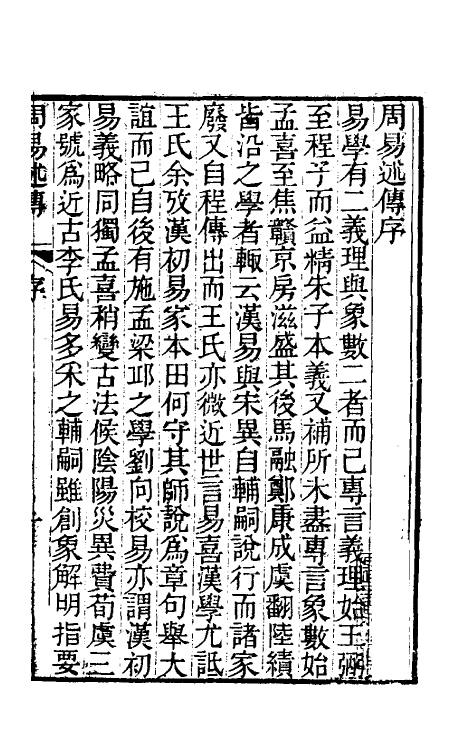 周易述傳序
易學有二義理與象數二者而已專言義理始王弼
至程子而益精朱子本義又補所未盡專言象數始
孟喜至焦贛京房滋盛其後馬融鄭康成虞翻陸績
皆沿之學者輙云漢易與宋異自輔嗣說行而諸家
廢又自程傳出而王氏亦微近世言易喜漢學尤詆
王氏余攷漢初易家本田何守其師說為章句舉大
誼而已自後有施孟梁邱之學劉向校易亦謂漢初
易義略同獨孟喜稍變古法候陰陽災異費荀虞三
家號為近古李氏易多采之輔嗣雖創象解明指要
周易述傳 序